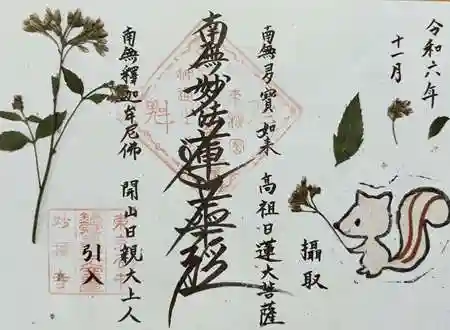 令和六年
十一月
南無多寳如来 高祖日蓮大菩薩
攝取
南無妙法蓮華経
南無釋迦牟尼佛 開山日観大上人
引入